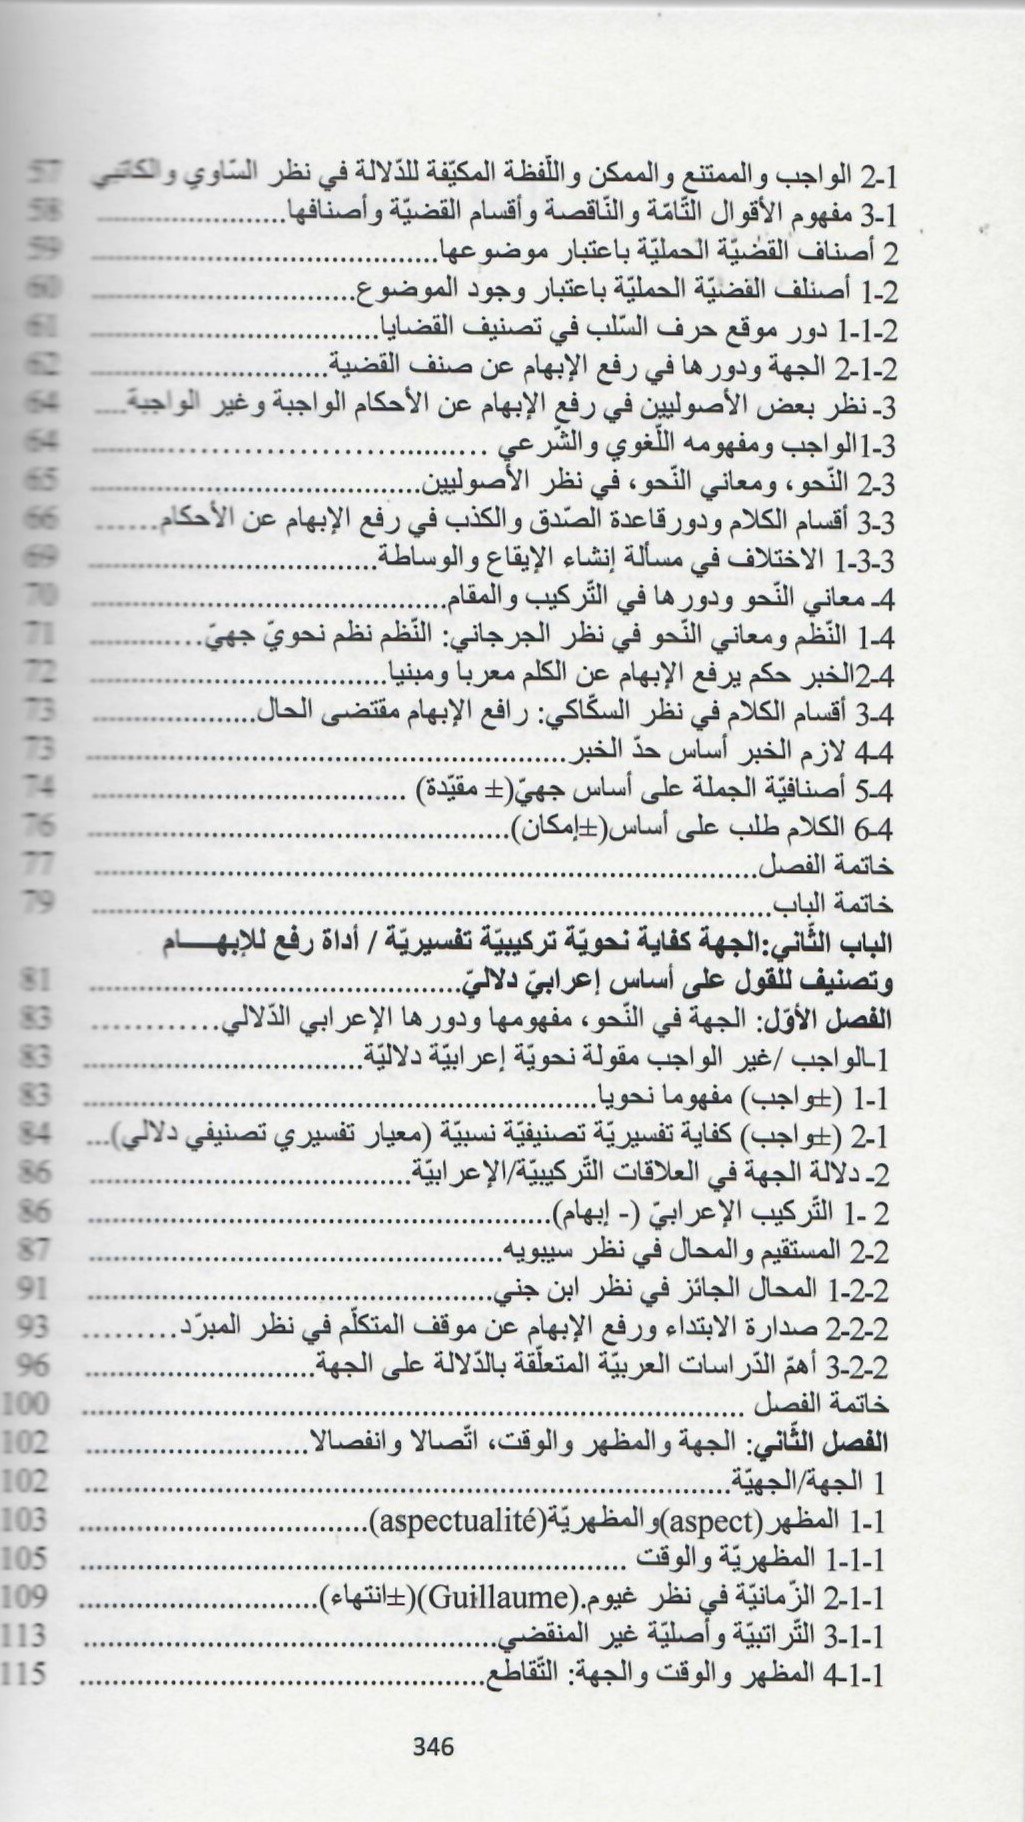 2-1 الواجب والممتنع والممكن واللّفظة المكيّفة للدّلالة في نظر السّاوي والكاتبي 57
3-1 مفهوم الأقوال التّامّة والنّاقصة وأقسام القضيّة وأصنافها........................ 58
2 أصناف القضيّة الحمليّة باعتبار موضوعها........................................ 59
1-2 أصنلف القضيّة الحمليّة باعتبار وجود الموضوع.............................. 60
1-1-2 دور موقع حرف السّلب في تصنيف القضايا................................ 61
2-1-2 الجهة ودورها في رفع الإبهام عن صنف القضية........................... 62
3- نظر بعض الأصوليين في رفع الإبهام عن الأحكام الواجبة وغير الواجبة.... 64
1-3الواجب ومفهومه اللّغوي والشّرعي ........................................ 64
2-3 النّحو، ومعاني النّحو، في نظر الأصوليين.................................... 65
3-3 أقسام الكلام ودورقاعدة الصّدق والكذب في رفع الإبهام عن الأحكام...... 66
1-3-3 الاختلاف في مسألة إنشاء الإيقاع والوساطة............................... 69
4- معاني النّحو ودورها في التّركيب والمقام....................................... 70
1-4 النّظم ومعاني النّحو في نظر الجرجاني: النّظم نظم نحويّ جهيّ............. 71
2-4الخبر حكم يرفع الإبهام عن الكلم معربا ومبنيا................................ 72
3-4 أقسام الكلام في نظر السكّاكي: رافع الإبهام مقتضى الحال.................. 73
4-4 لازم الخبر أساس حدّ الخبر.................................................. 73
5-4 أصنافيّة الجملة على أساس جهيّ(± مقيّدة) ................................ 74
6-4 الكلام طلب على أساس(±إمكان)............................................. 76
خاتمة الفصل....................................................................... 77
خاتمة الباب........................................................................ 79
الباب الثّاني:الجهة كفاية نحويّة تركيبيّة تفسيريّة / أداة رفع للإبهـــام
وتصنيف للقول على أساس إعرابيّ دلاليّ........................................ 81
الفصل الأوّل: الجهة في النّحو، مفهومها ودورها الإعرابي الدّلالي............ 83
1-الواجب /غير الواجب مقولة نحويّة إعرابيّة دلاليّة............................. 83
1-1 (±واجب) مفهوما نحويا...................................................... 83
2-1 (±واجب) كفاية تفسيريّة تصنيفيّة نسبيّة (معيار تفسيري تصنيفي دلالي)... 84
2- دلالة الجهة في العلاقات التّركيبيّة/الإعرابيّة.................................. 86
2 -1 التّركيب الإعرابيّ (- إبهام)................................................. 86
2-2 المستقيم والمحال في نظر سيبويه............................................ 87
1-2-2 المحال الجائز في نظر ابن جني........................................... 91
2-2-2 صدارة الابتداء ورفع الإبهام عن موقف المتكلّم في نظر المبرّد.......... 93
3-2-2 أهمّ الدّراسات العربيّة المتعلّقة بالدّلالة على الجهة........................ 96
خاتمة الفصل ..................................................................... 100
الفصل الثّاني: الجهة والمظهر والوقت، اتّصالا وانفصالا....................... 102
1 الجهة/الجهيّة.................................................................... 102
1-1 المظهر(aspect)والمظهريّة(aspectualité)............................... 103
1-1-1 المظهريّة والوقت ........................................................ 105
2-1-1 الزّمانيّة في نظر غيوم.(Guillaume)(±انتهاء)........................ 109
3-1-1 التّراتبيّة وأصليّة غير المنقضي.......................................... 113
4-1-1 المظهر والوقت والجهة: التّقاطع......................................... 115
346